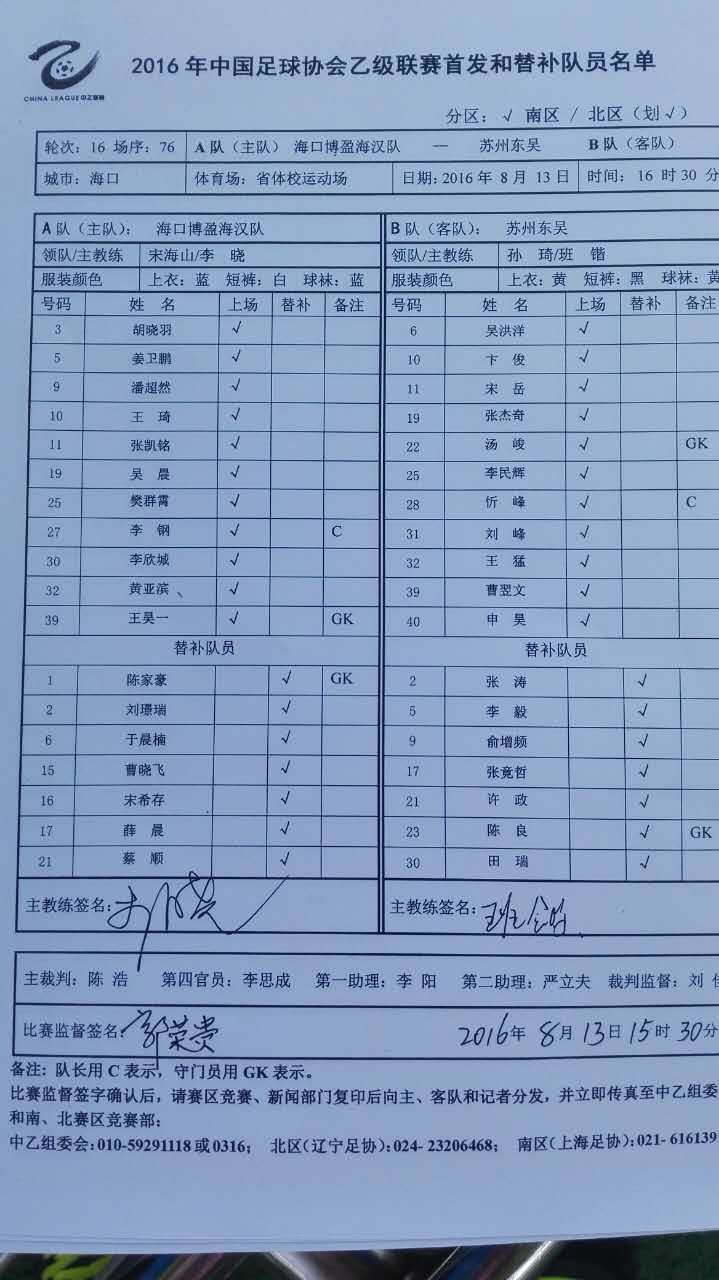 2016年中国足球协会乙级联赛首发和替补队员名单
CHINA LEAGUE 中乙联赛
分区：√ 南区 / 北区（划√）
轮次：16 场序：76 A 队（主队） 海口博盈海汉队 — 苏州东吴 B 队（客队）
城市：海口 体育场：省体校运动场 日期：2016 年 8 月 13 日 时间： 16 时 30 分
A 队（主队）： 海口博盈海汉队 B 队（客队）： 苏州东吴
领队/主教练 宋海山/李 晓 领队/主教练 孙 琦/班 锴
服装颜色 上衣：蓝 短裤：白 球袜：蓝 服装颜色 上衣：黄 短裤：黑 球袜：黄
号码 姓 名 上场 替补 备注 号码 姓 名 上场 替补 备注
3 胡晓羽 √ 6 吴洪洋 √
5 姜卫鹏 √ 10 卞 俊 √
9 潘超然 √ 11 宋 岳 √
10 王 琦 √ 19 张杰奇 √
11 张凯铭 √ 22 汤 峻 √ GK
19 吴 晨 √ 25 李民辉 √
25 樊群霄 √ 28 忻 峰 √ C
27 李 钢 √ C 31 刘 峰 √
30 李欣城 √ 32 王 猛 √
32 黄亚滨、 √ 39 曹翌文 √
39 王昊一 √ GK 40 申 昊 √
替补队员 替补队员
1 陈家豪 √ GK 2 张 涛 √
2 刘璟瑞 √ 5 李 毅 √
6 于晨楠 √ 9 俞增频 √
15 曹晓飞 √ 17 张竟哲 √
16 宋希存 √ 21 许 政 √
17 薛 晨 √ 23 陈 良 √ GK
21 蔡 顺 √ 30 田 瑞 √
主教练签名： 主教练签名：班锴
主裁判：陈 浩 第四官员：李思成 第一助理：李 阳 第二助理：严立夫 裁判监督：刘
比赛监督签名：郭荣贵 2016年 8月 13日 15时 30分
备注：队长用 C 表示，守门员用 GK 表示。
比赛监督签字确认后，请赛区竞赛、新闻部门复印后向主、客队和记者分发，并立即传真至中乙组委
和南、北赛区竞赛部：
中乙组委会：010-59291118 或 0316； 北区（辽宁足协）：024- 23206468； 南区（上海足协）：021- 616139